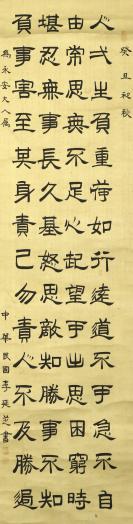 癸丑初秋
人弌生負重荷如行遠道不可急不自
由常思無不足心起望可思困窮時
堪忍無事長久基怒思敵知勝事不知
負事害至其身責己勿責人不及勝過
為永安大人屬
中華民國李延芝書